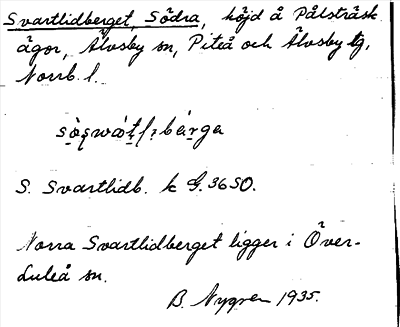 Svartlidberget, Södra, höjd å Pålsträsk
ägor, Älvsby sn, Piteå och Älvsby tg,
Norrb. l.
S. Svartlidb. k G. 36 SO.
Norra Svartlidberget ligger i Över-
Luleå sn.
B. Nygren 1935.